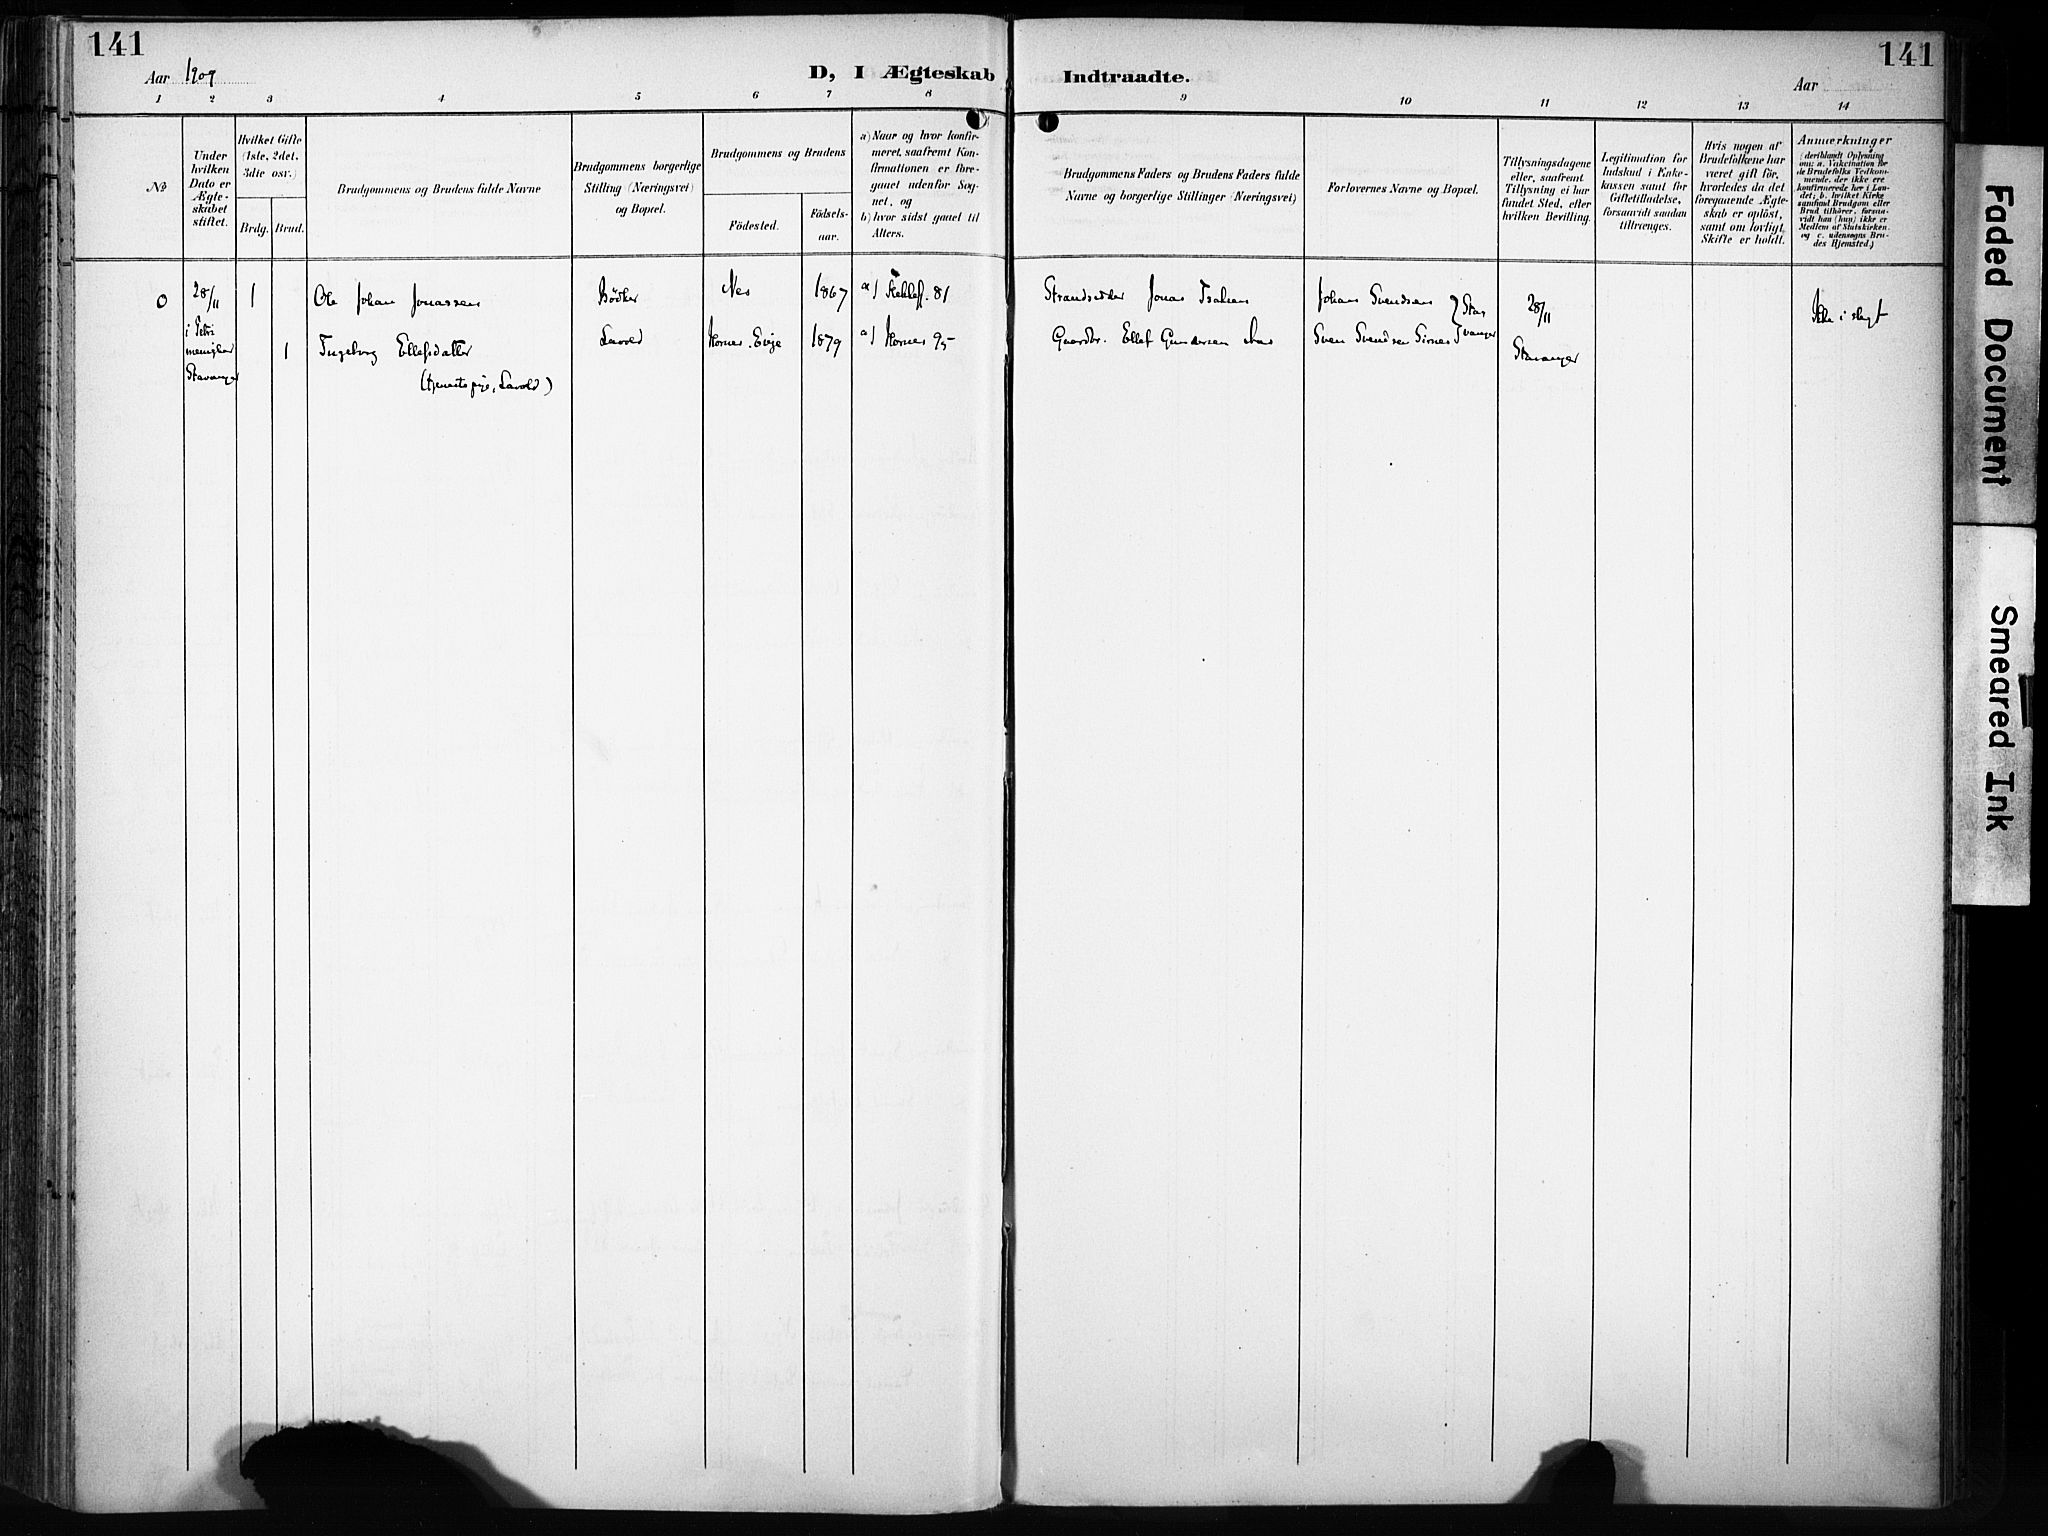 141
Aar 1909
D, I Ægteskab
Indtraadte.
Aar
141
1 2 3 4 5 6 7 8 9 10 11 12 13 14
№
Under
hvilken
Dato er
Ægte-
skabet
stiftet.
Hvilket Gifte
(1ste, 2det,
3die osv.)
Brdg. Brud.
Brudgommens og Brudens fulde Navne
Brudgommens borgerlige
Stilling (Næringsvei)
og Bopæl.
Brudgommens og Brudens
Födested.
Födsels-
aar.
a) Naar og hvor konfir-
meret, saafremt Kon-
firmationen er fore-
gaaet udenfor Sog-
net, og
b) hvor sidst gaaet til
Alters.
Brudgommens Faders og Brudens Faders fulde
Navne og borgerlige Stillinger (Næringsvei)
Forlovernes Navne og Bopæl.
Tillysningsdagene
eller, saafremt
Tillysning ei har
fundet Sted, efter
hvilken Bevilling.
Legitimation for
Indskud i Enke-
kassen samt for
Giftetilladelse,
forsaavidt saadan
tiltrænges.
Hvis nogen af
Brudefolkene har
været gift för,
hvorledes da det
foregaaende Ægte-
skab er oplöst,
samt om lovligt
Skifte er holdt.
Anmærkninger
(deriblandt Oplysning
om: a. Vakcination for
de Brudefolks Vedkom-
mende, der ikke ere
konfirmerede her i Lan-
det; b. hvilket Kirke
samfund Brudgom eller
Brud tilhörer, forsaa-
vidt han (hun) ikke er
Medlem af Statskirken.
og c. udensogns Bru-
des Hjemsted.)
0 28/11 1 Ole Johan Jonassen Bödker Nes 1867 a) 81 Strandsidder Jonas Johans Svendsen 28/11 Ikke i slegt
i Petri
menighed
Stavanger
1 Ingeborg Ellefsdatter Hornes. Evje 1879 a) Hornes 95 Gaardbr. Ellef Gundersen Sven Svendsen Stavanger
Stavanger